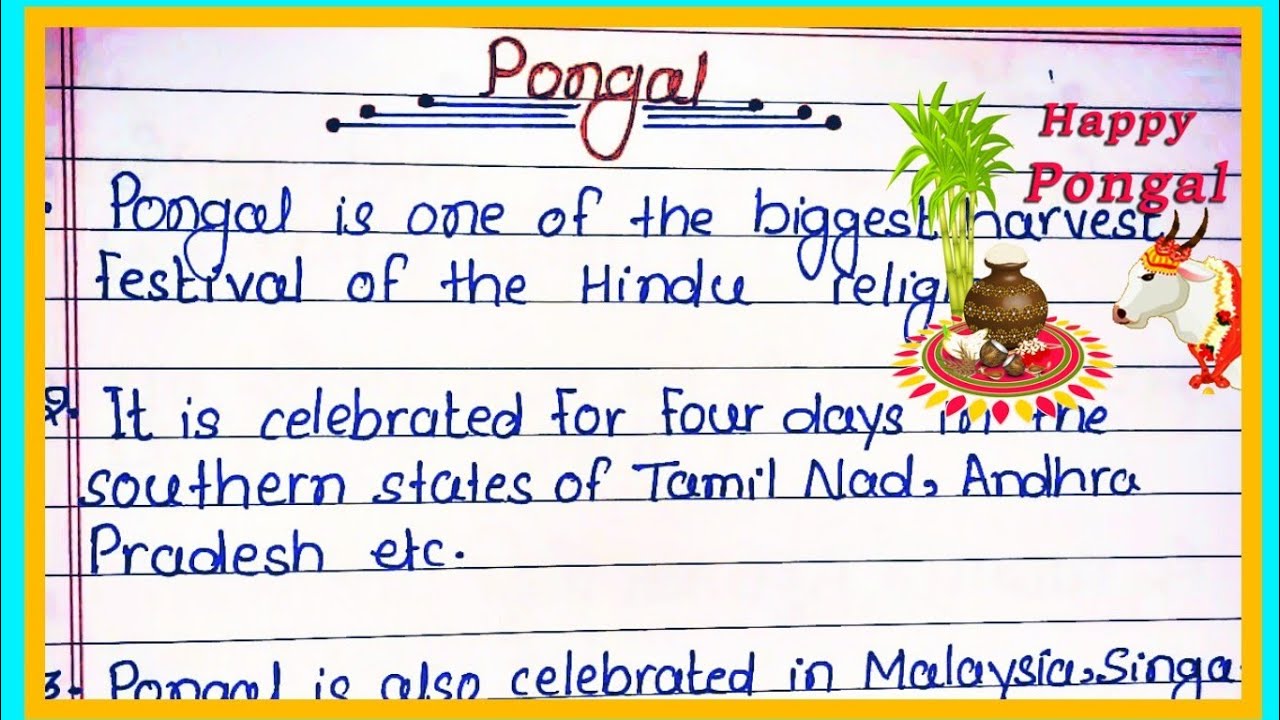 Pongal
Happy
Pongal
Pongal is one of the biggest harvest
festival of the Hindu
2. It is celebrated for four days in the
southern states of Tamil Nad, Andhra
Pradesh etc.
3. Pongal is also celebrated in Malaysia, Singa